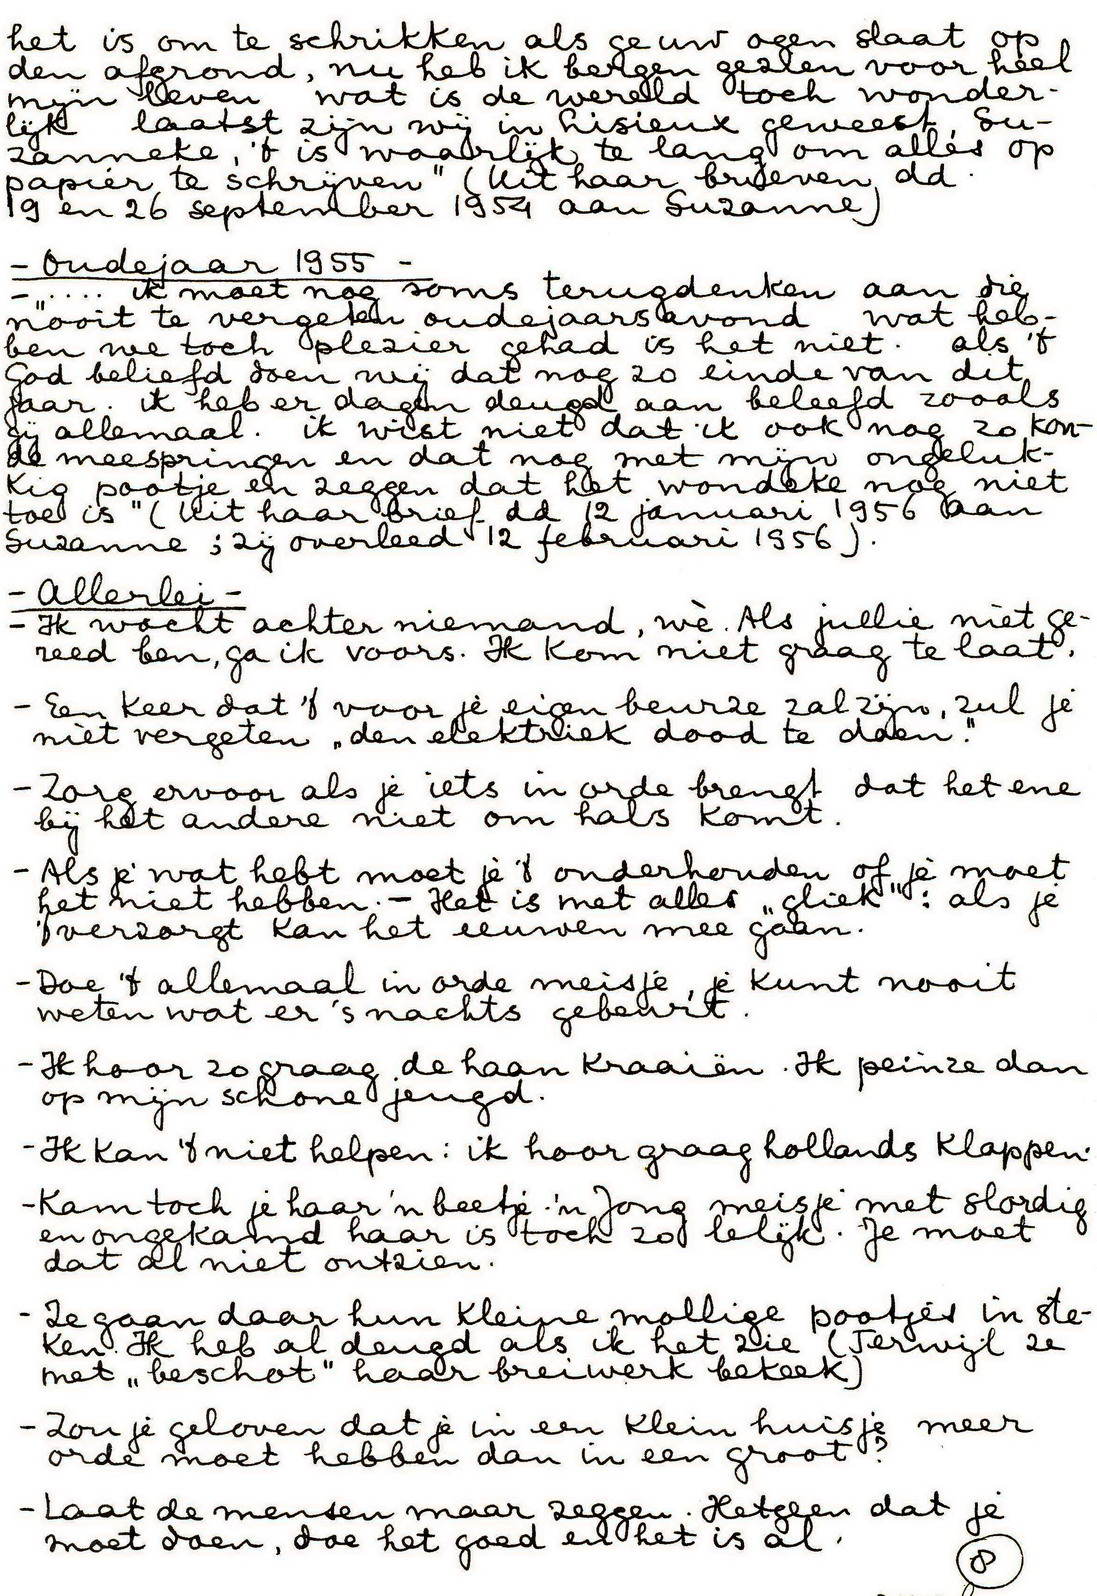 het is om te schrikken als ge uw ogen slaat op
den afgrond, nu heb ik bergen gezien voor heel
mijn leven wat is de wereld toch wonder-
lijk laatst zijn wij in Lisieux geweest, Su-
zanneke, 't is waarlijk te lang om alles op
papier te schrijven" (Uit haar brieven dd.
19 en 26 september 1954 aan Suzanne)
- Oudejaar 1955 -
- ".... ik moet nog soms terugdenken aan die
nooit te vergeten oudejaarsavond wat heb-
ben we toch plezier gehad is het niet. als 't
God beliefd doen wij dat nog zo einde van dit
jaar. ik heb er dagen deugd aan beleefd zooals
gij allemaal. ik wist niet dat ik ook nog zo kon-
de meespringen en dat nog met mijn ongeluk-
kig pootje en zeggen dat het wondeke nog niet
toe is" (Uit haar brief dd 12 januari 1956 aan
Suzanne ; zij overleed 12 februari 1956).
- Allerlei -
- Ik wacht achter niemand, wè. Als jullie niet ge-
reed ben, ga ik voors. Ik kom niet graag te laat.
- Een keer dat 't voor je eigen beurze zal zijn, zul je
niet vergeten „den elektriek dood te doen."
- Zorg ervoor als je iets in orde brengt dat het ene
bij het andere niet om hals komt.
- Als je wat hebt moet je 't onderhouden of je moet
het niet hebben. - Het is met alles „gliek" : als je
't verzorgt kan het eeuwen mee gaan.
- Doe 't allemaal in orde meisje, je kunt nooit
weten wat er 's nachts gebeurt.
- Ik hoor zo graag de haan kraaiën. Ik peinze dan
op mijn schone jeugd.
- Ik kan 't niet helpen : ik hoor graag hollands klappen.
- Kam toch je haar 'n beetje. 'n Jong meisje met slordig
en ongekamd haar is toch zo lelijk. Je moet
dat al niet ontzien.
- Ze gaan daar hun kleine mollige pootjes in ste-
ken. Ik heb al deugd als ik het zie (Terwijl ze
met „beschot" haar breiwerk bekeek)
- Zou je geloven dat je in een klein huisje meer
orde moet hebben dan in een groot ?
- Laat de mensen maar zeggen. Hetgeen dat je
moet doen, doe het goed en het is al.
8